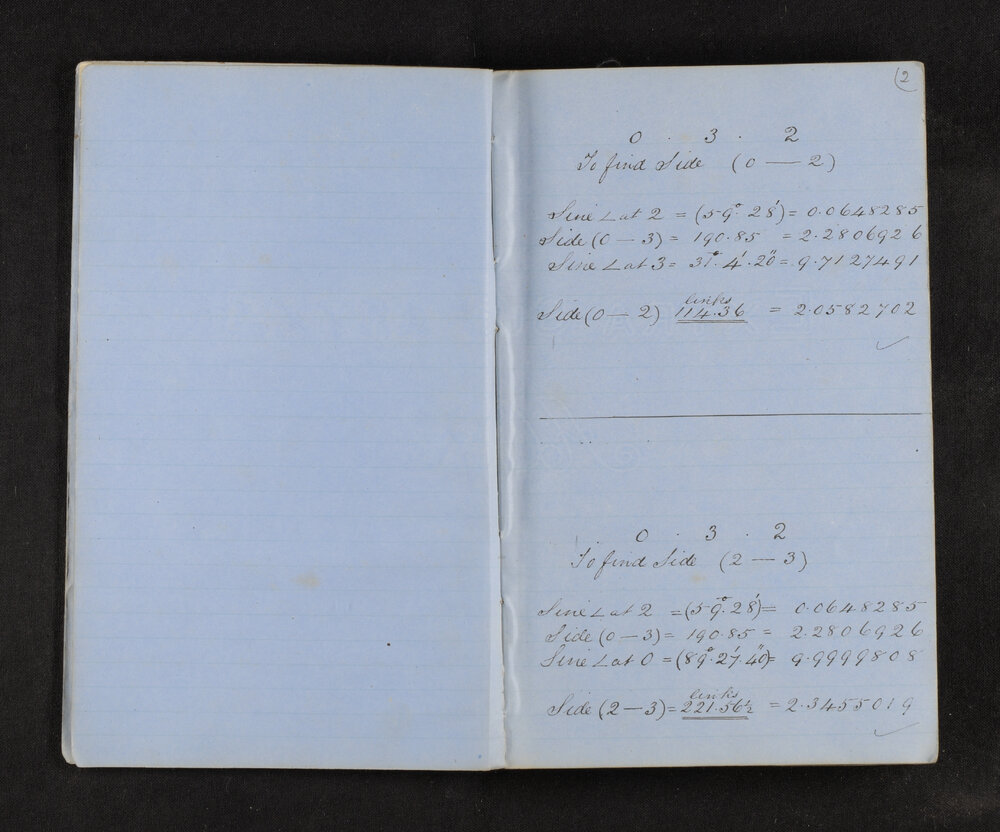 2
0 . 3 . 2
To find Side (0 — 2)
Sine ∠ at 2 = (59°. 28') = 0.0648285
Side (0 — 3) = 190.85 = 2.2806926
Sine ∠ at 3 = 31°. 4'. 20" = 9.7127491
links
Side (0 — 2) 114.36 = 2.0582702
0 . 3 . 2
To find Side (2 — 3)
Sine ∠ at 2 = (59°. 28') = 0.0648285
Side (0 — 3) = 190.85 = 2.2806926
Sine ∠ at 0 = (89°. 27'. 40") = 9.9999808
links
Side (2 — 3) = 221.56½ = 2.3455019